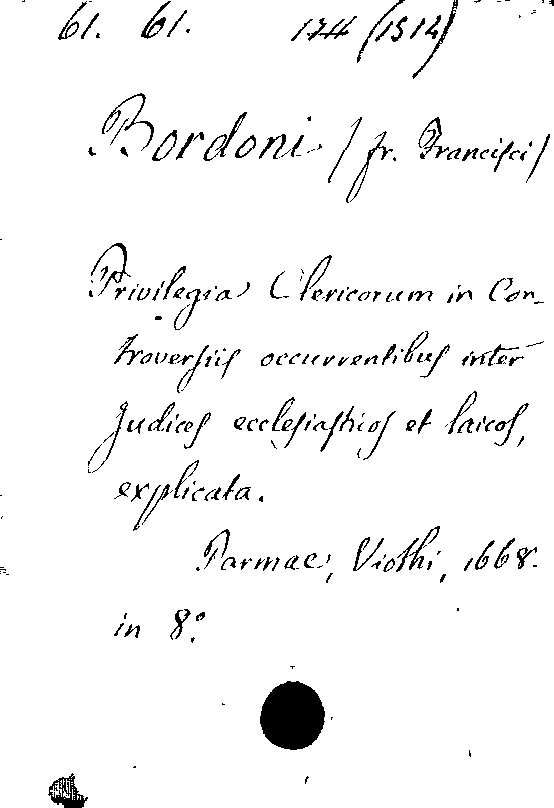 61. 61. 174 (1512)
Bordoni / fr. Francisci /
Privilegia Clericorum in Con-
troversiis occurrentibus inter
Judices ecclesiasticos et laicos,
explicata.
Parmae, Viothi, 1668.
in 8°.